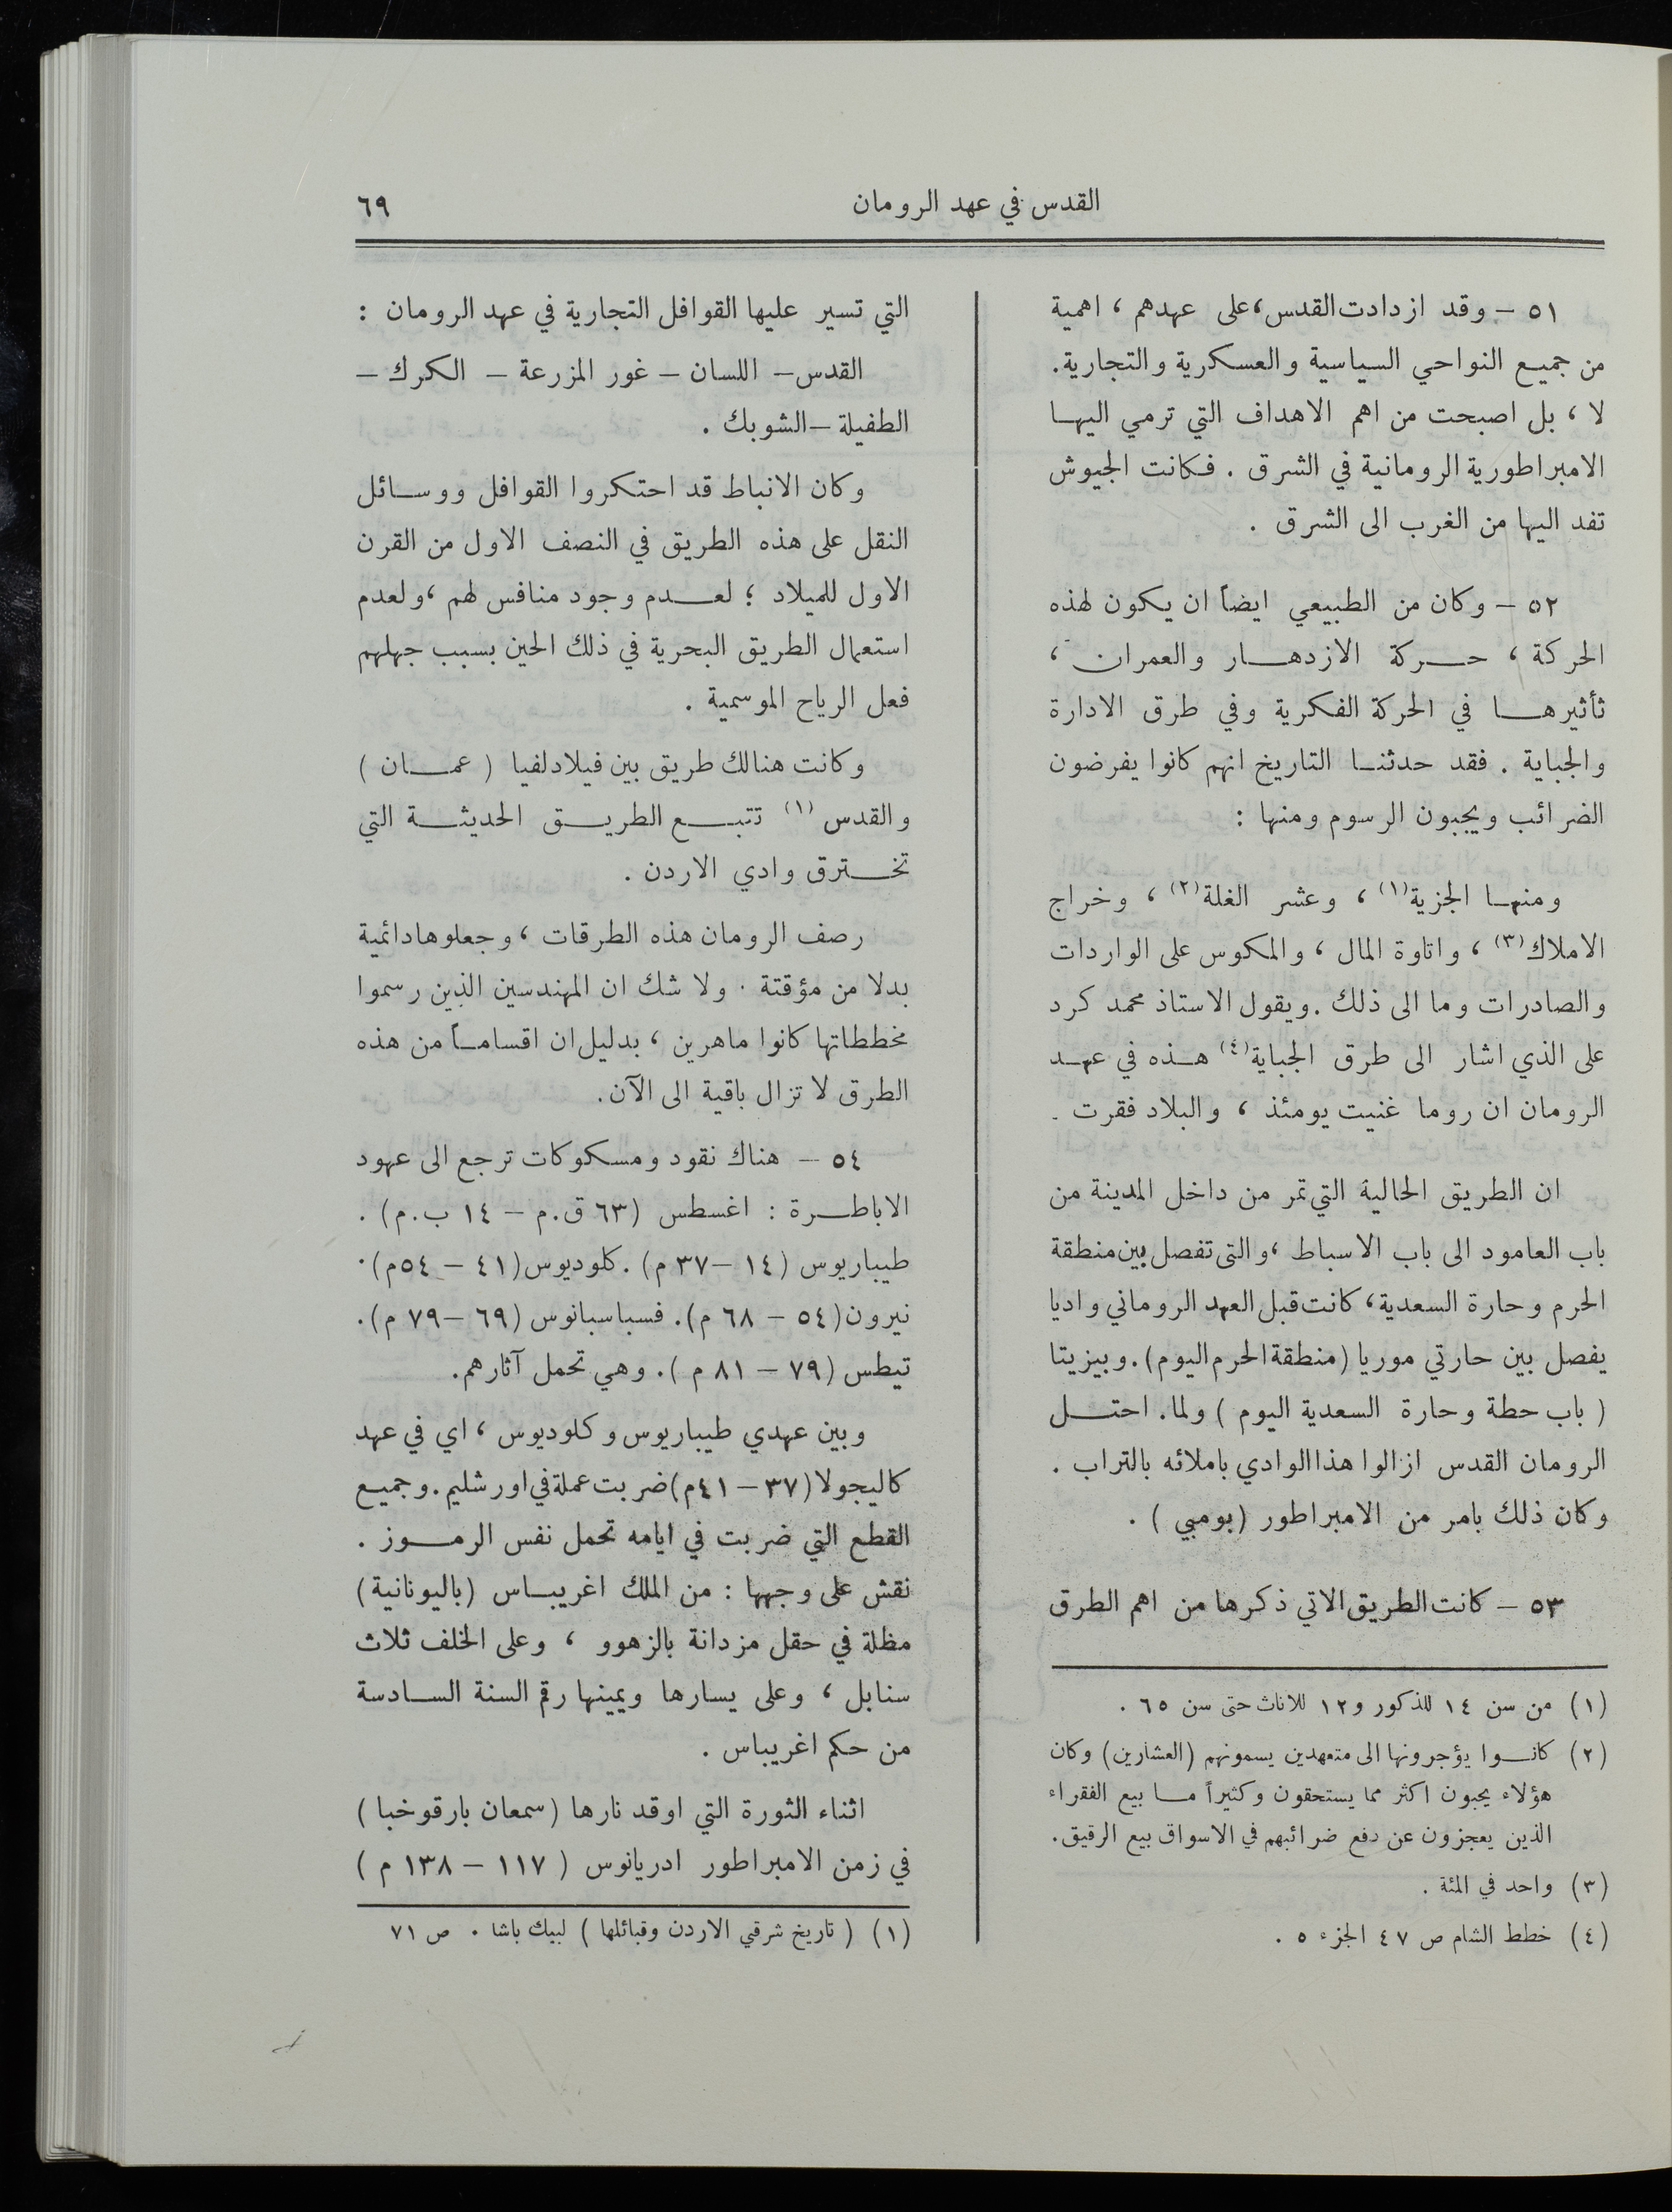 القدس في عهد الرومان
٦٩
٥١ – وقد ازدادت القدس، على عهدهم ، اهمية
من جميع النواحي السياسية والعسكرية والتجارية.
لا ، بل اصبحت من اهم الاهداف التي ترمي اليها
الامبراطورية الرومانية في الشرق . فكانت الجيوش
تفد اليها من الغرب الى الشرق .
٥٢ – وكان من الطبيعي ايضاً ان يكون لهذه
الحركة ، حركة الازدهار والعمران ،
ثأثيرها في الحركة الفكرية وفي طرق الادارة
والجباية . فقد حدثنا التاريخ انهم كانوا يفرضون
الضرائب ويجبون الرسوم ومنها :
ومنها الجزية(١) ، وعشر الغلة(٢) ، وخراج
الاملاك(٣) ، واتاوة المال ، والمكوس على الواردات
والصادرات وما الى ذلك . ويقول الاستاذ محمد كرد
على الذي اشار الى طرق الجباية(٤) هذه في عهد
الرومان ان روما غنيت يومئذ ، والبلاد فقرت .
ان الطريق الحالية التي تمر من داخل المدينة من
باب العامود الى باب الاسباط ، والتى تفصل بين منطقة
الحرم وحارة السعدية ، كانت قبل العهد الروماني واديا
يفصل بين حارتي موريا (منطقة الحرم اليوم). وبيزيتا
( باب حطة وحارة السعدية اليوم ) ولما. احتل
الرومان القدس ازالوا هذا الوادي باملائه بالتراب .
وكان ذلك بامر من الامبراطور (بومبي ) .
٥٣ – كانت الطريق الاتي ذكرها من اهم الطرق
(١) من سن ١٤ للذكور و١٢ للاناث حتى سن ٦٥ .
(٢) كانوا يؤجرونها الى متعهدين يسمونهم (العشارين) وكان
هؤلاء يجبون اكثر مما يستحقون وكثيراً ما بيع الفقراء
الذين يعجزون عن دفع ضرائبهم في الاسواق بيع الرقيق.
(٣) واحد في المئة .
(٤) خطط الشام ص ٤٧ الجزء ٥ .
التي تسير عليها القوافل التجارية في عهد الرومان :
القدس – اللسان – غور المزرعة – الكرك –
الطفيلة – الشوبك .
وكان الانباط قد احتكروا القوافل ووسائل
النقل على هذه الطريق في النصف الاول من القرن
الاول للميلاد ؛ لعدم وجود منافس لهم ، ولعدم
استعمال الطريق البحرية في ذلك الحين بسبب جهلهم
فعل الرياح الموسمية .
وكانت هنالك طريق بين فيلادلفيا ( عمان )
والقدس (١) تتبع الطريق الحديثة التي
تخترق وادي الاردن .
رصف الرومان هذه الطرقات ، وجعلوها دائمية
بدلا من مؤقتة . ولا شك ان المهندسين الذين رسموا
مخططاتها كانوا ماهرين ، بدليل ان اقساماً من هذه
الطرق لا تزال باقية الى الآن.
٥٤ – هناك نقود ومسكوكات ترجع الى عهود
الاباطرة : اغسطس (٦٣ ق.م – ١٤ ب.م) .
طيباريوس (١٤ – ٣٧ م) . كلوديوس (٤١ – ٥٤م) .
نيرون (٥٤ – ٦٨ م). فسباسبانوس (٦٩ – ٧٩ م).
تيطس (٧٩ – ٨١ م ). وهي تحمل آثارهم.
وبين عهدي طيباريوس وكلوديوس ، اي في عهد
كاليجولا (٣٧ – ٤١م) ضربت عملة في اورشليم. وجميع
القطع التي ضربت في ايامه تحمل نفس الرموز .
نقش على وجهها : من الملك اغريباس (باليونانية)
مظلة في حقل مزدانة بالزهوو ، وعلى الخلف ثلاث
سنابل ، وعلى يسارها ويمينها رقم السنة السادسة
من حكم اغريباس .
اثناء الثورة التي اوقد نارها (سمعان بارقوخبا )
في زمن الامبراطور ادريانوس ( ١١٧ – ١٣٨ م )
(١) ( تاريخ شرقي الاردن وقبائلها ) لبيك باشا . ص ٧١